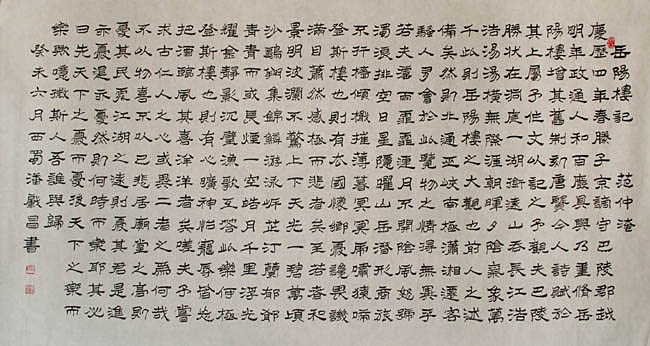 岳陽樓記 范仲淹
慶歷四年春滕子京謫守巴陵郡越
明年政通人和百廢具興乃重修岳
陽樓增其舊制刻唐賢今人詩賦於
其上屬予作文以記之予觀夫巴陵
勝狀在洞庭一湖銜遠山吞長江浩
浩湯湯橫無際涯朝暉夕陰氣象萬
千此則岳陽樓之大觀也前人之述
備矣然則北通巫峽南極瀟湘遷客
騷人多會於此覽物之情得無異乎
若夫霪雨霏霏連月不開陰風怒號
濁浪排空日星隱曜山岳潛形商旅
不行檣傾楫摧薄暮冥冥虎嘯猿啼
登斯樓也則有去國懷鄉憂讒畏譏
滿目蕭然感極而悲者矣至若春和
景明波瀾不驚上下天光一碧萬頃
沙鷗翔集錦鱗游泳岸芷汀蘭郁郁
青青而或長煙一空皓月千里浮光
耀金靜影沉璧漁歌互答此樂何極
登斯樓也則有心曠神怡寵辱皆忘
把酒臨風其喜洋洋者矣嗟夫予嘗
求古仁人之心或異二者之為何哉
不以物喜不以己悲居廟堂之高則
憂其民處江湖之遠則憂其君是進
亦憂退亦憂然則何時而樂耶其必
曰先天下之憂而憂後天下之樂而
樂歟噫微斯人吾誰與歸
癸未六月西蜀潘昌書